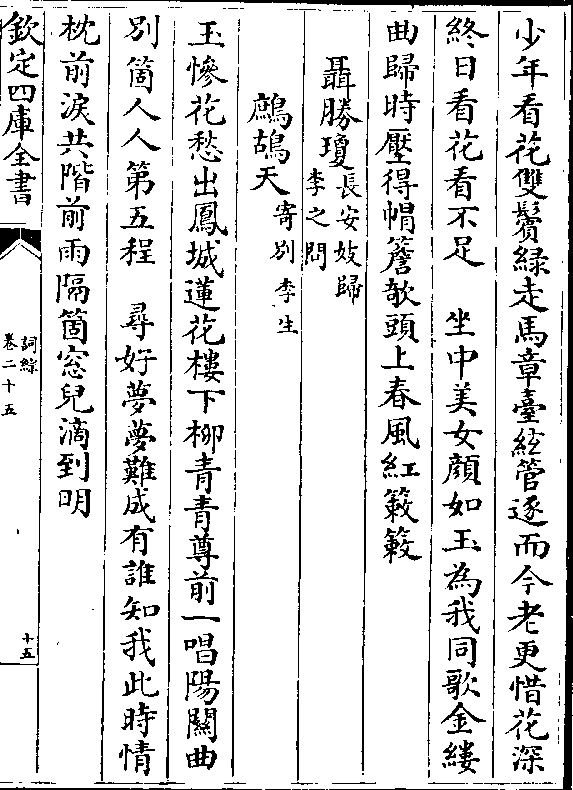 少年看花雙鬢緑走馬章臺絃管逐而今老更惜花深
終日看花看不足　坐中美女顔如玉為我同歌金縷
曲歸時壓得帽簷欹頭上春風紅簌簌
聶勝瓊長安妓歸李之問
鷓鴣天寄别李生
玉慘花愁出鳳城蓮花樓下柳青青尊前一唱陽關曲
别箇人人第五程　尋好夢夢難成有誰知我此時情
枕前淚共階前雨隔箇窓兒滴到明
欽定四庫全書
詞綜
卷二十五
十五